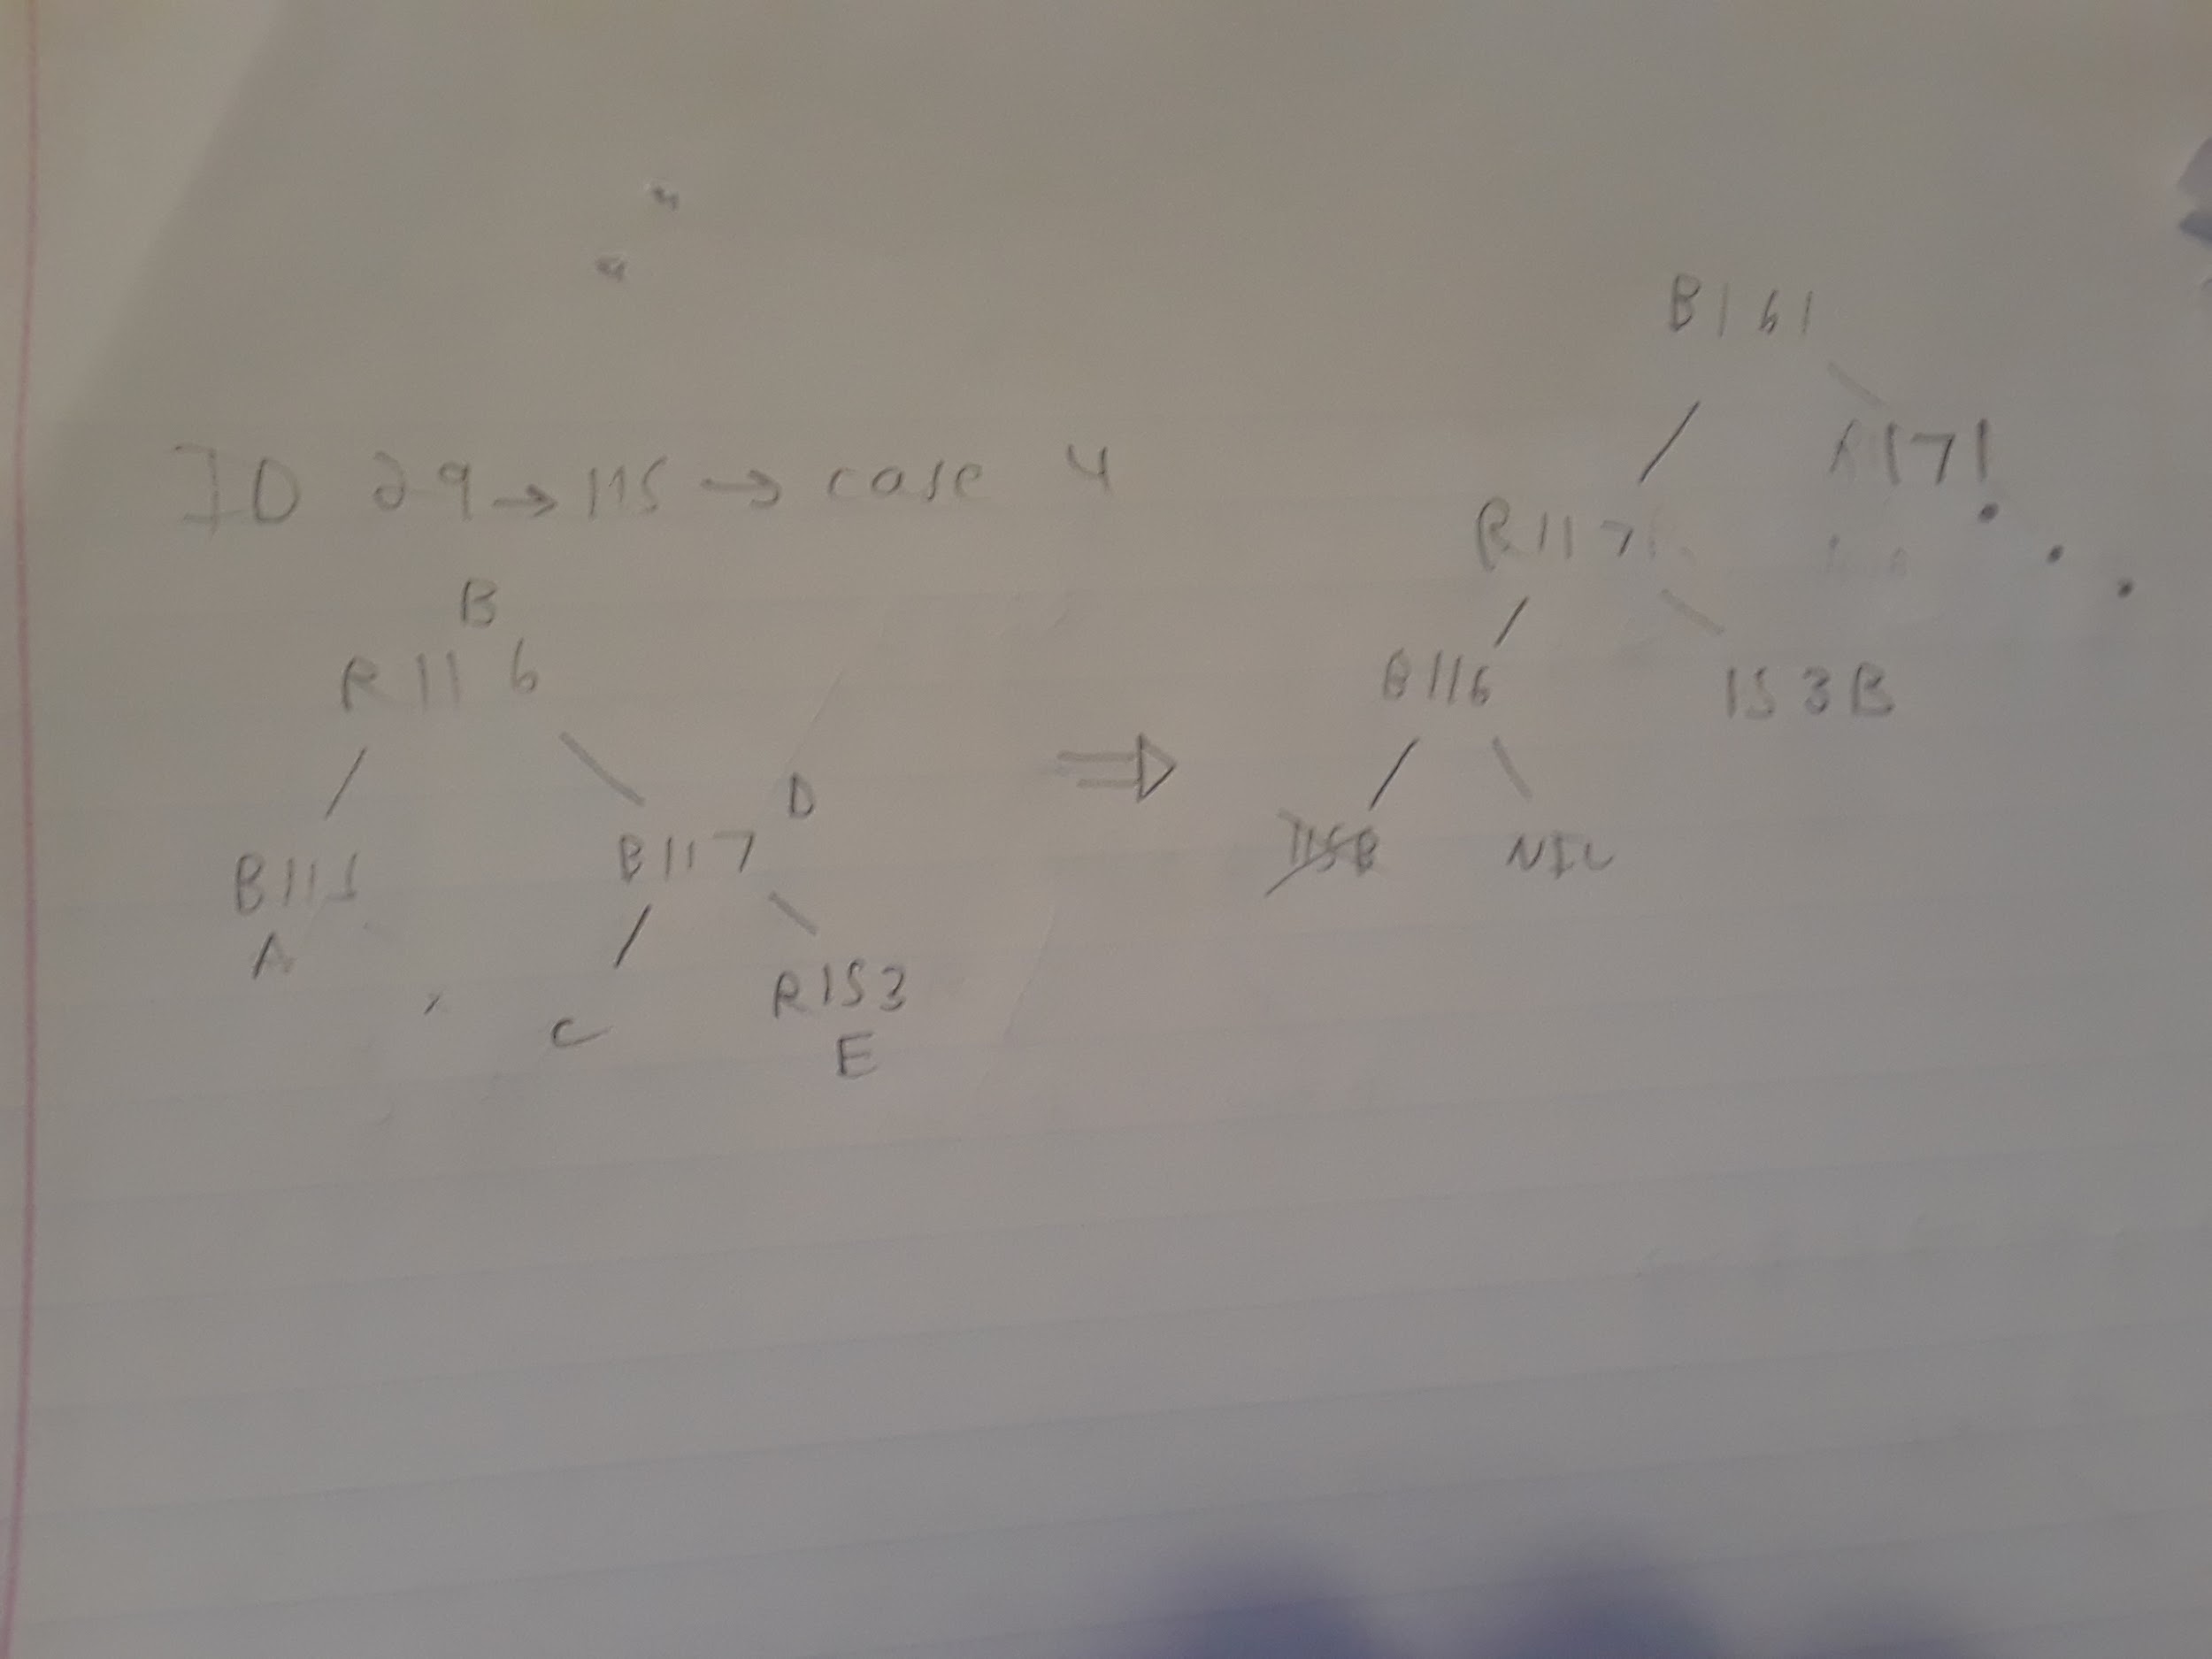 ID 29 → 115 → case 4
B
R116
B115
A
D
B117
C
R153
E
⇒
B161
171
R117
B116
153B
115B
NIL